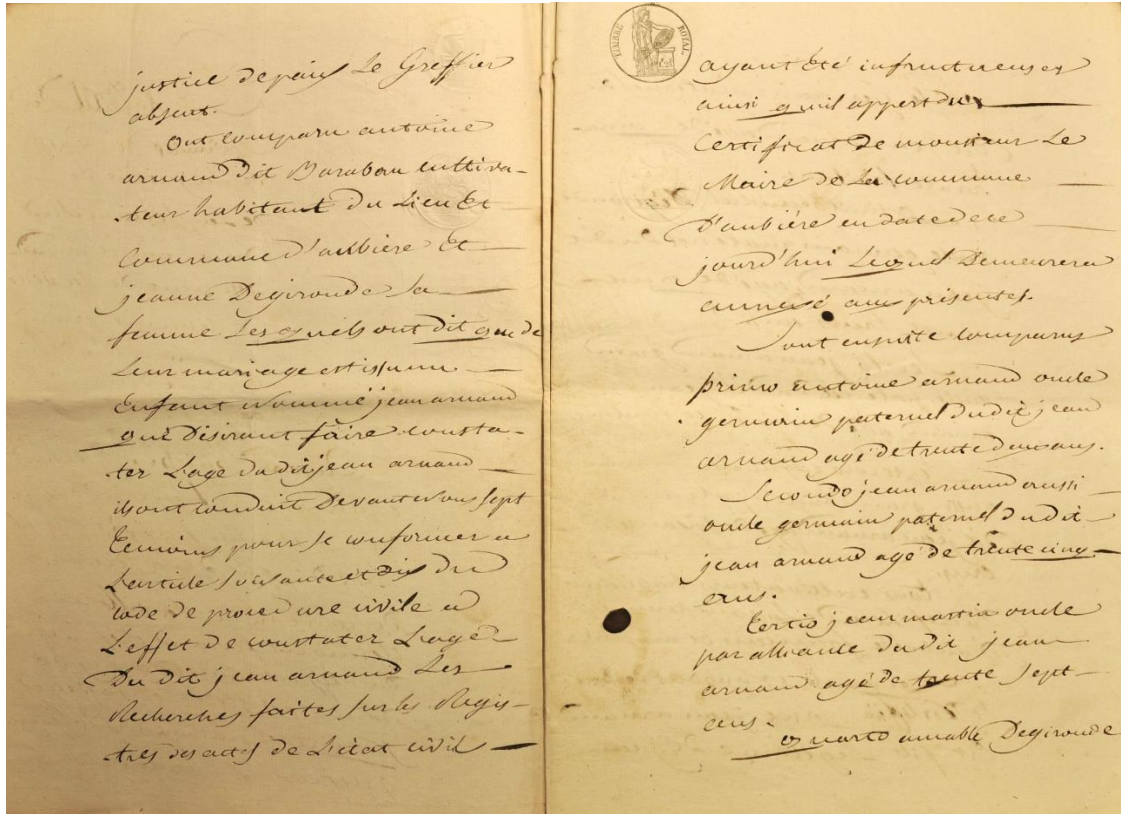 justice de paix Le Greffier
absent.
Ont Comparu antoine
arnaud Dit Barabau cultiva-
teur habitant du Lieu Et
Commune d'aubière Et
jeanne Degironde sa
femme Les quels ont dit que de
Leur mariage est issu un
Enfant Nommé jean arnaud
que Désirant faire consta-
ter L'age du dit jean arnaud
ils ont Conduit Devant Nous sept
Temoins pour se conformer a
L'article soixante et dix du
code de procedure civile a
L'effet de constater L'age
Du Dit jean arnaud Les
Recherches faites sur les Regis-
tres des actes de L'etat civil
TIMBRE ROYAL
ayant Eté infructueuses
ainsi qu'il appert du
Certificat de monsieur Le
Maire de La commune
D'aubière en date de ce
jourd'hui Lequel Demeurera
annexé aux présentes.
Sont ensuite comparus
primo antoine arnaud oncle
germain paternel du dit jean
arnaud agé de trente deux ans.
Secondo jean arnaud aussi
oncle germain paternel du dit
jean arnaud agé de trente cinq
ans.
Tertio jean martin oncle
par alliance du dit jean
arnaud agé de trente sept
ans.
quarto amable Degironde